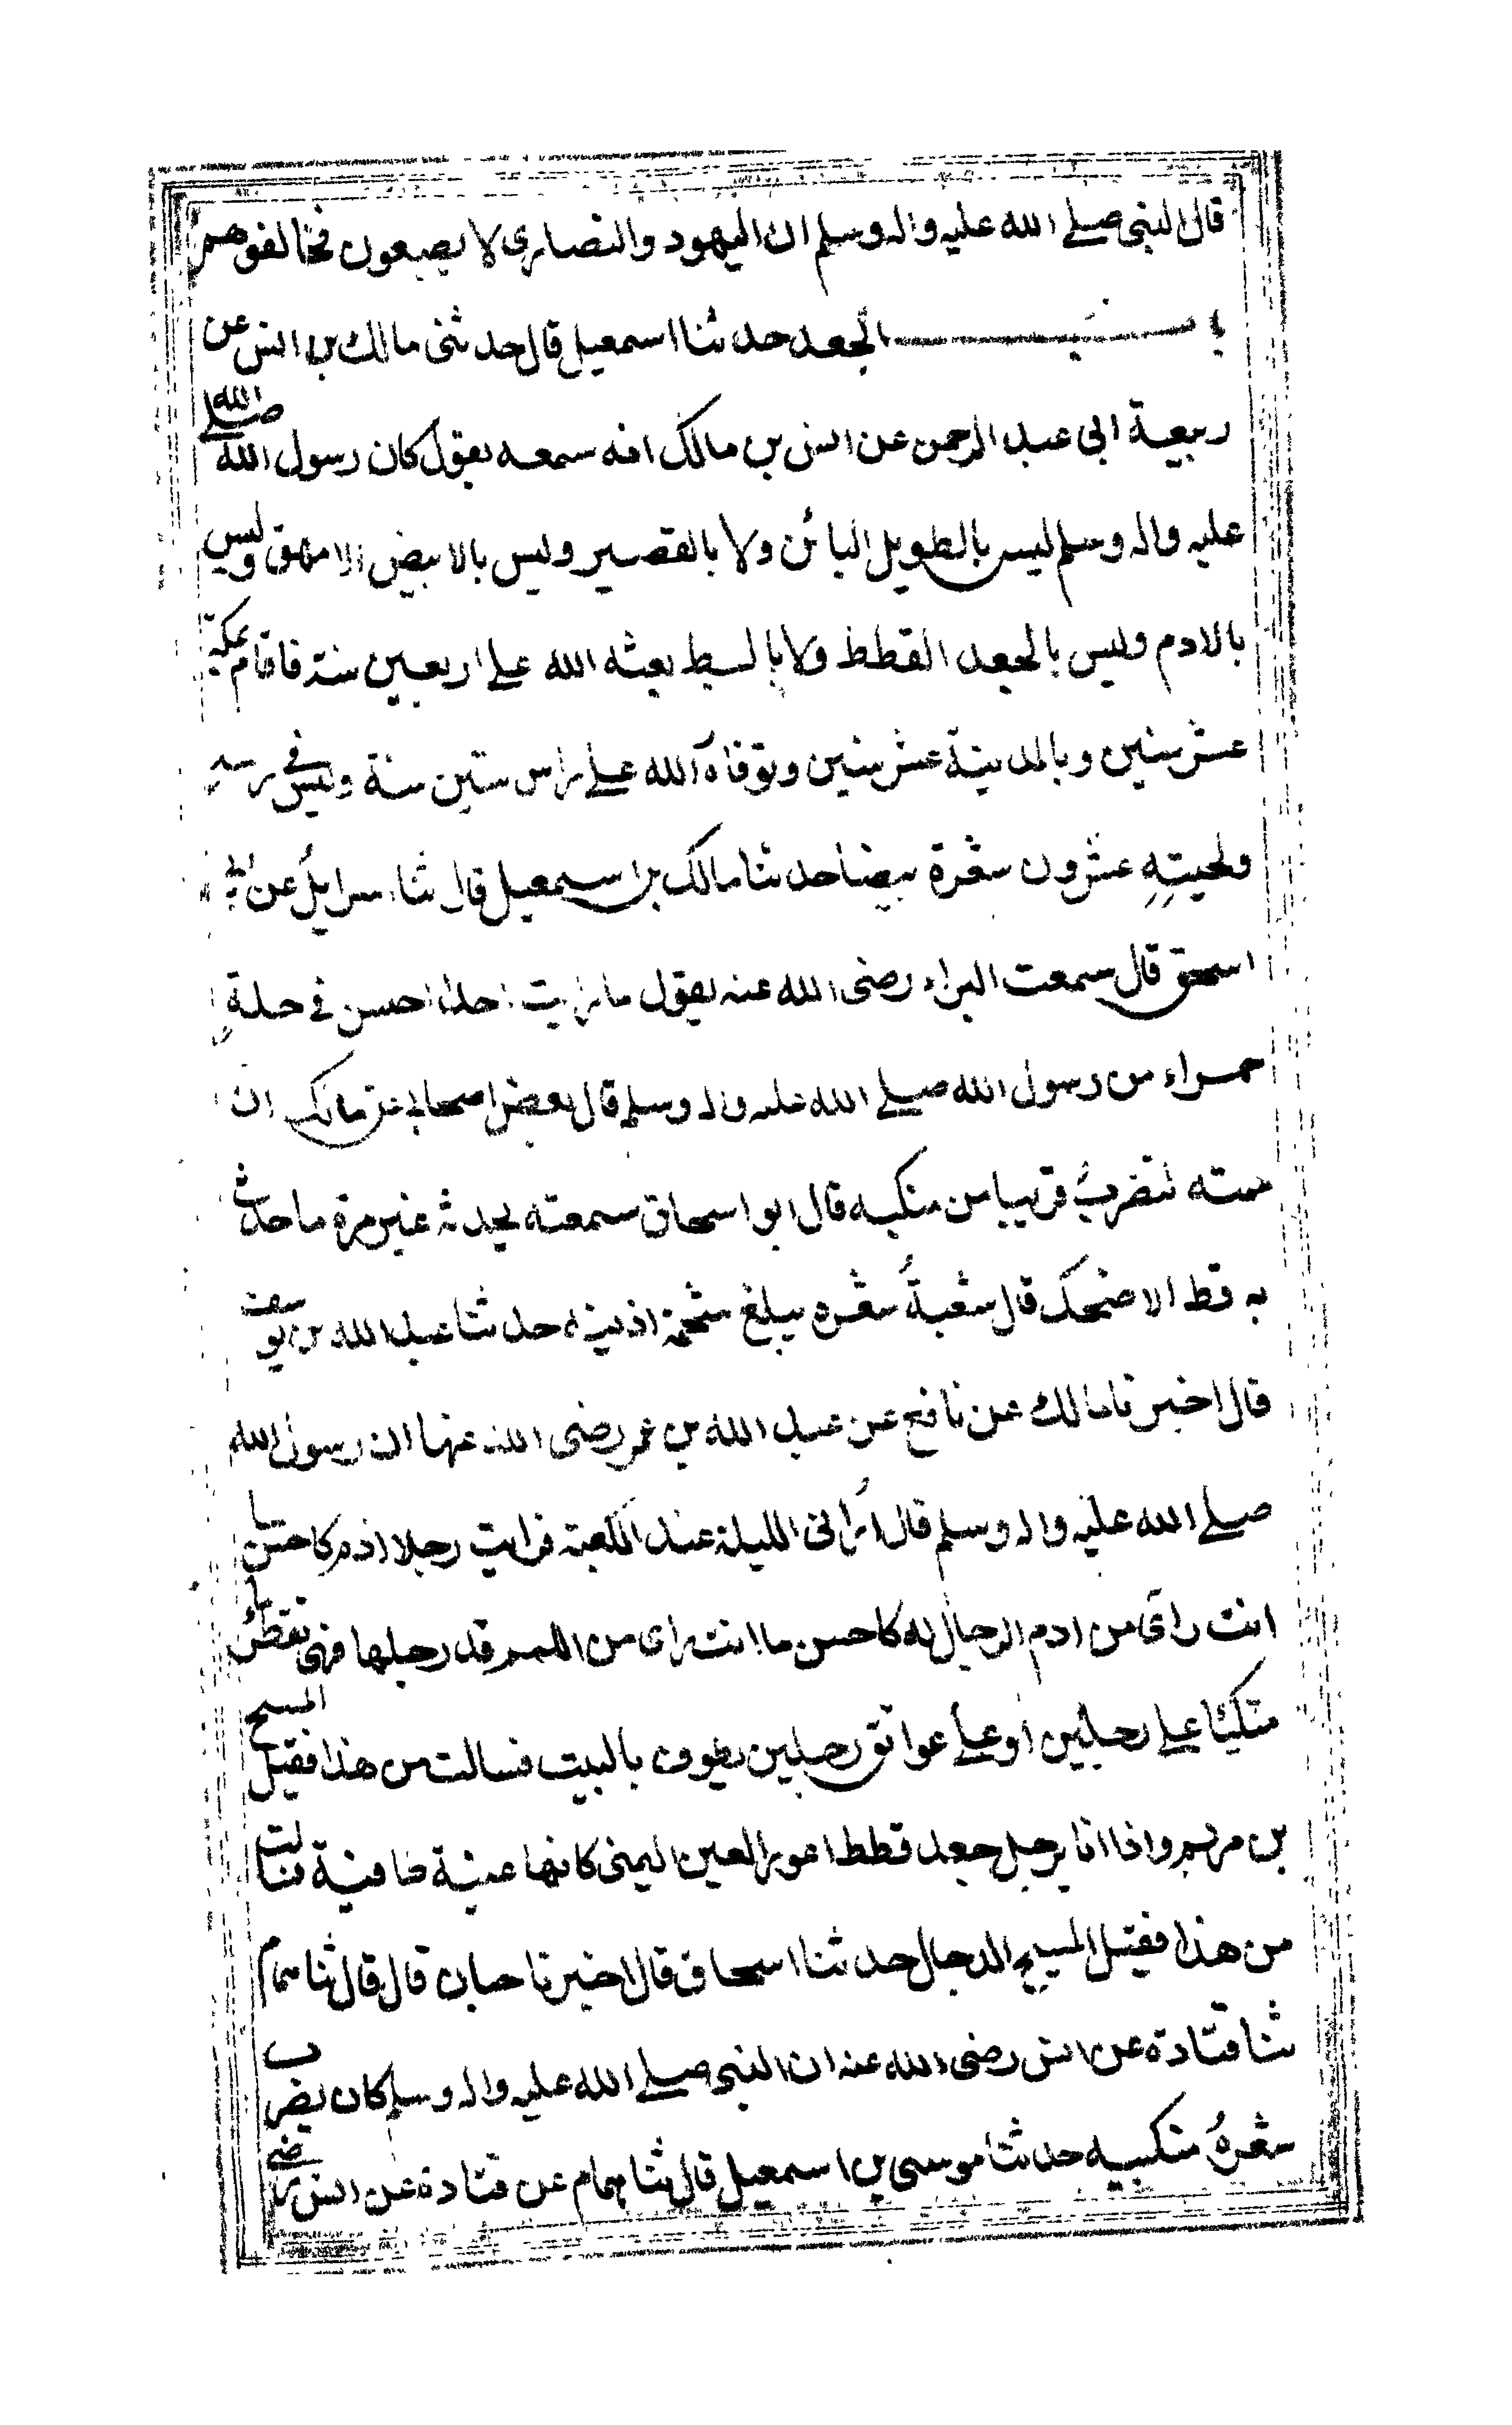 قال النبي صلے الله عليه واله وسلم ان اليهود والنصاري لا يصبغون فخالفوهم
باب الجعد حدثنا اسمعيل قال حدثني مالك بن انس عن
ربيعة ابي عبد الرحمن عن انس بن مالك انه سمعه يقول كان رسول الله صلے الله
عليه واله وسلم ليس بالطويل البائن ولا بالقصير وليس بالابيض الامهق وليس
بالادم وليس بالجعد القطط ولا بالسبط بعثه الله علے اربعين سنة فاقام بمكة
عشر سنين وبالمدينة عشر سنين وتوفاه الله علے راس ستين سنة وليس في راسه
ولحيته عشرون شعرة بيضا حدثنا مالك بن اسمعيل قال ثنا اسرايل عن ابي
اسحق قال سمعت البراء رضي الله عنه يقول ما رايت احدا احسن في حلة
حمراء من رسول الله صلے الله عليه واله وسلم قال بعض اصحابي عن مالك ان
جمته لتضرب قريبا من منكبيه قال ابو اسحاق سمعته يحدثه غير مرة ما حدث
به قط الا ضحك قال شعبة شعره يبلغ شحمة اذنيه حدثنا عبد الله بن يوسف
قال اخبرنا مالك عن نافع عن عبد الله بن عمر رضي الله عنهما ان رسول الله
صلے الله عليه واله وسلم قال اراني الليلة عند الكعبة فرايت رجلا ادم كاحسن ما
انت راى من ادم الرجال له كاحسن ما انت راى من اللمم قد رجلها فهي تقطر ماء
متكئا علے رجلين او علے عواتق رجلين يطوف بالبيت فسالت من هذا فقيل المسيح
بن مريم واذا انا برجل جعد قطط اعور العين اليمنى كانها عنبة طافية فسالت
من هذا فقيل المسيح الدجال حدثنا اسحاق قال اخبرنا حبان قال قال ثنا همام
ثنا قتادة عن انس رضي الله عنه ان النبي صلے الله عليه واله وسلم كان يضرب
شعره منكبيه حدثنا موسى بن اسمعيل قال ثنا همام عن قتادة عن انس رضي